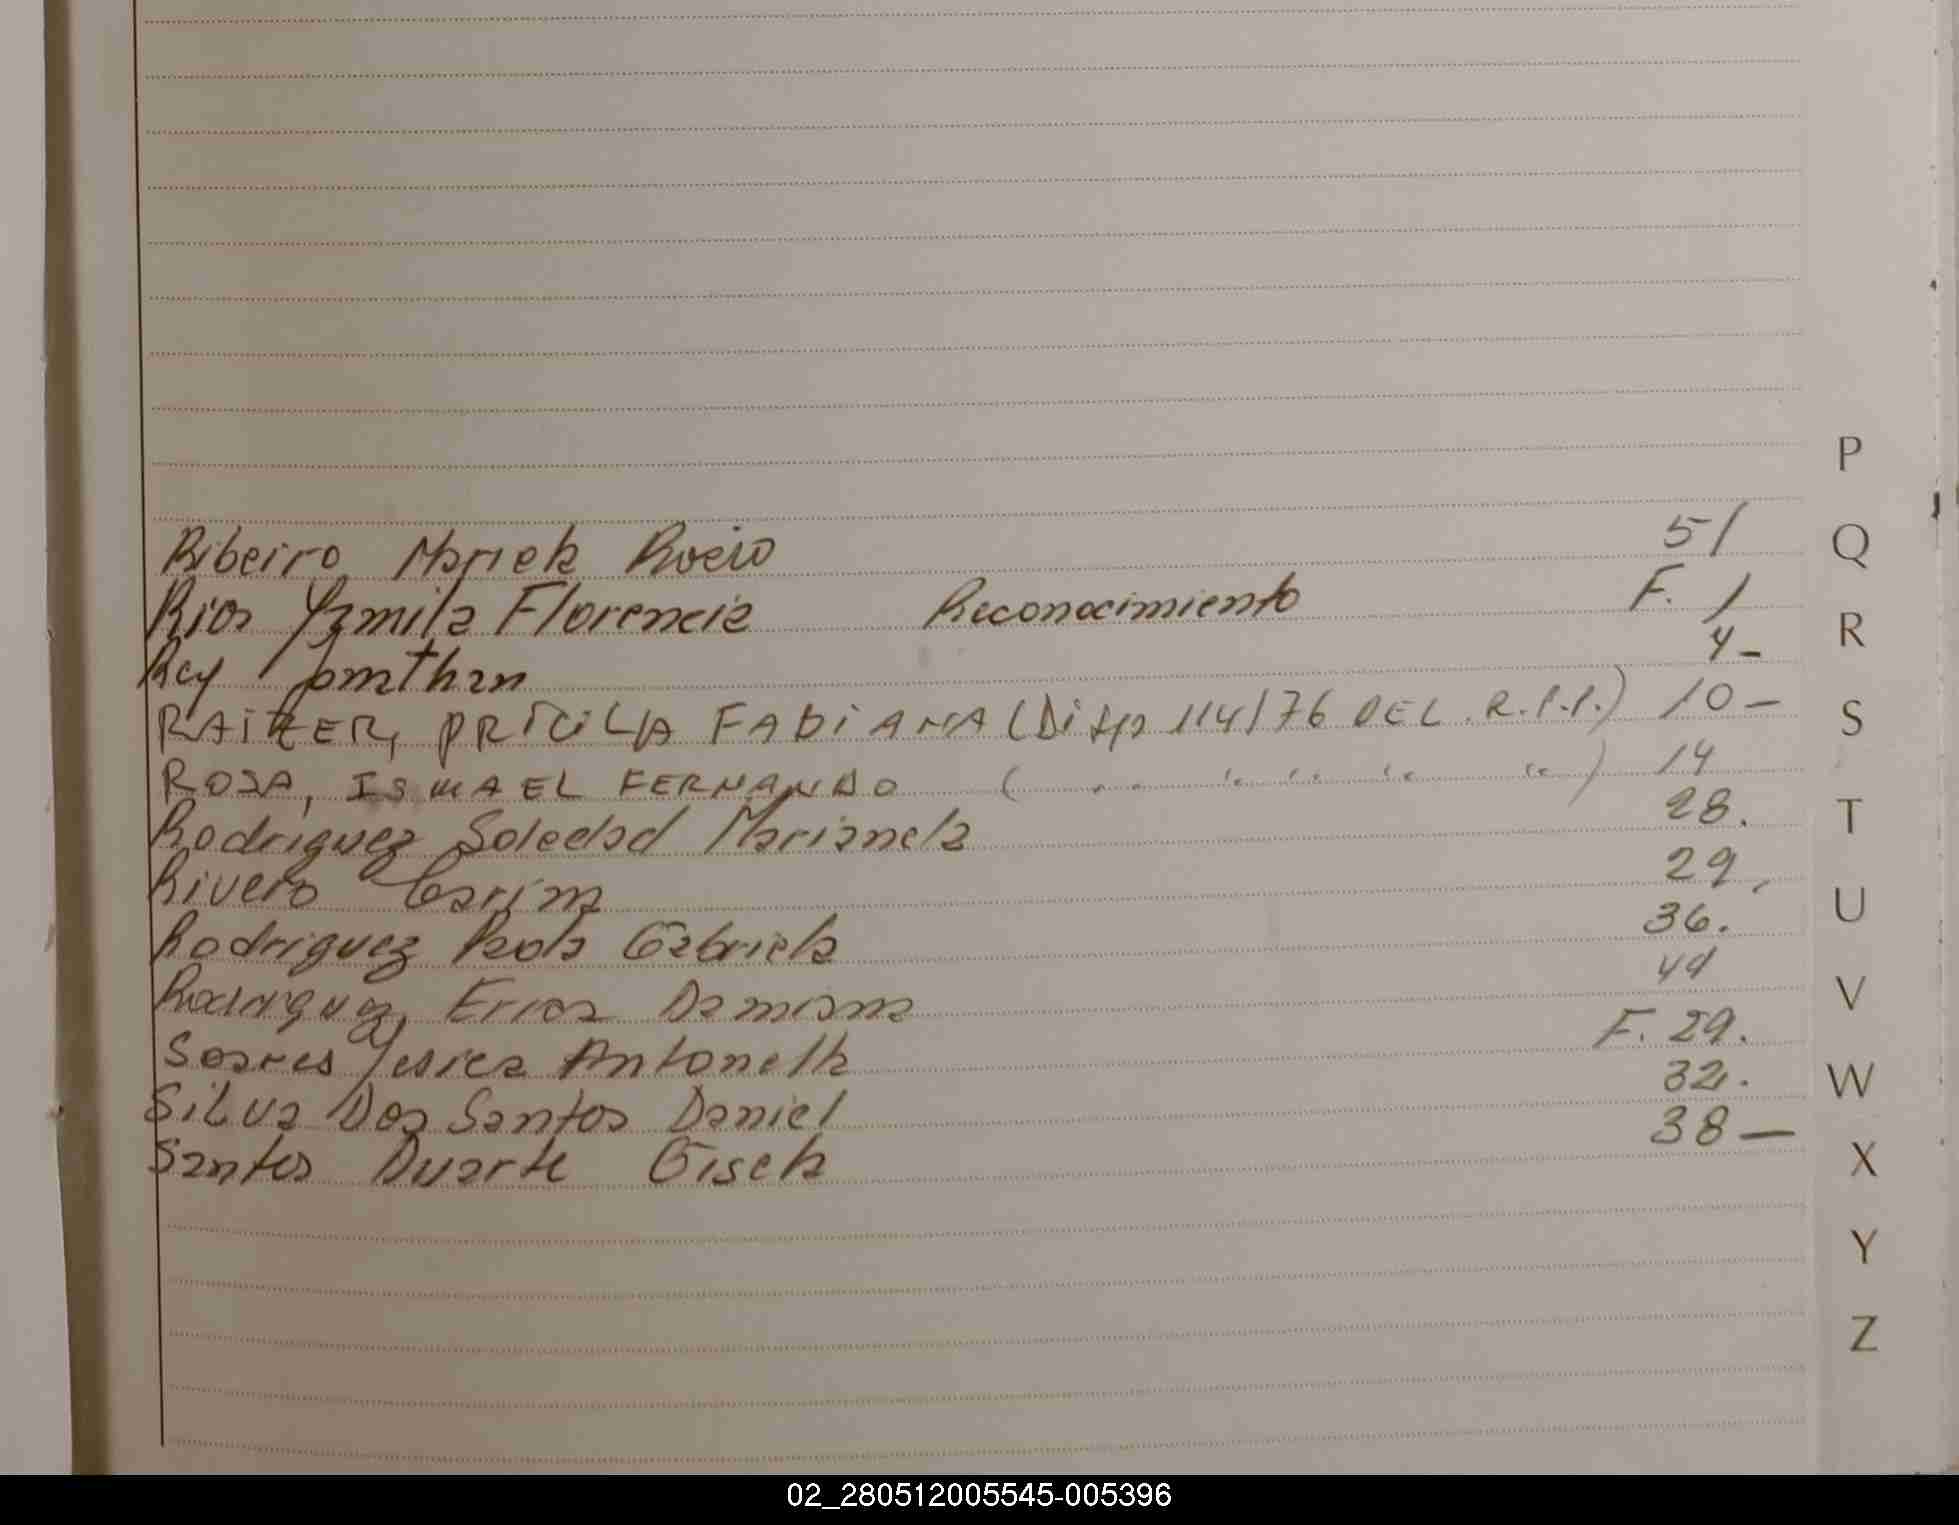 Ribeiro Mariela Rocio 51
Rios Yamila Florencia Reconocimiento F. 1
Rey Jonathan 4-
RAITZER, PRICILIA FABIANA (Disp 114/76 DEL R.P.P.) 10-
ROSA, ISMAEL FERNANDO ( " " " " " ) 14
Rodriguez Soledad Marianela 28.
Rivero Carina 29.
Rodriguez Paola Gabriela 36.
Rodriguez, Erica Damiana
Soares Jesica Antonella F. 29.
Silva Dos Santos Daniel 32.
Santos Duarte Gisela 38-
P
Q
R
S
T
U
V
W
X
Y
Z
02_280512005545-005396